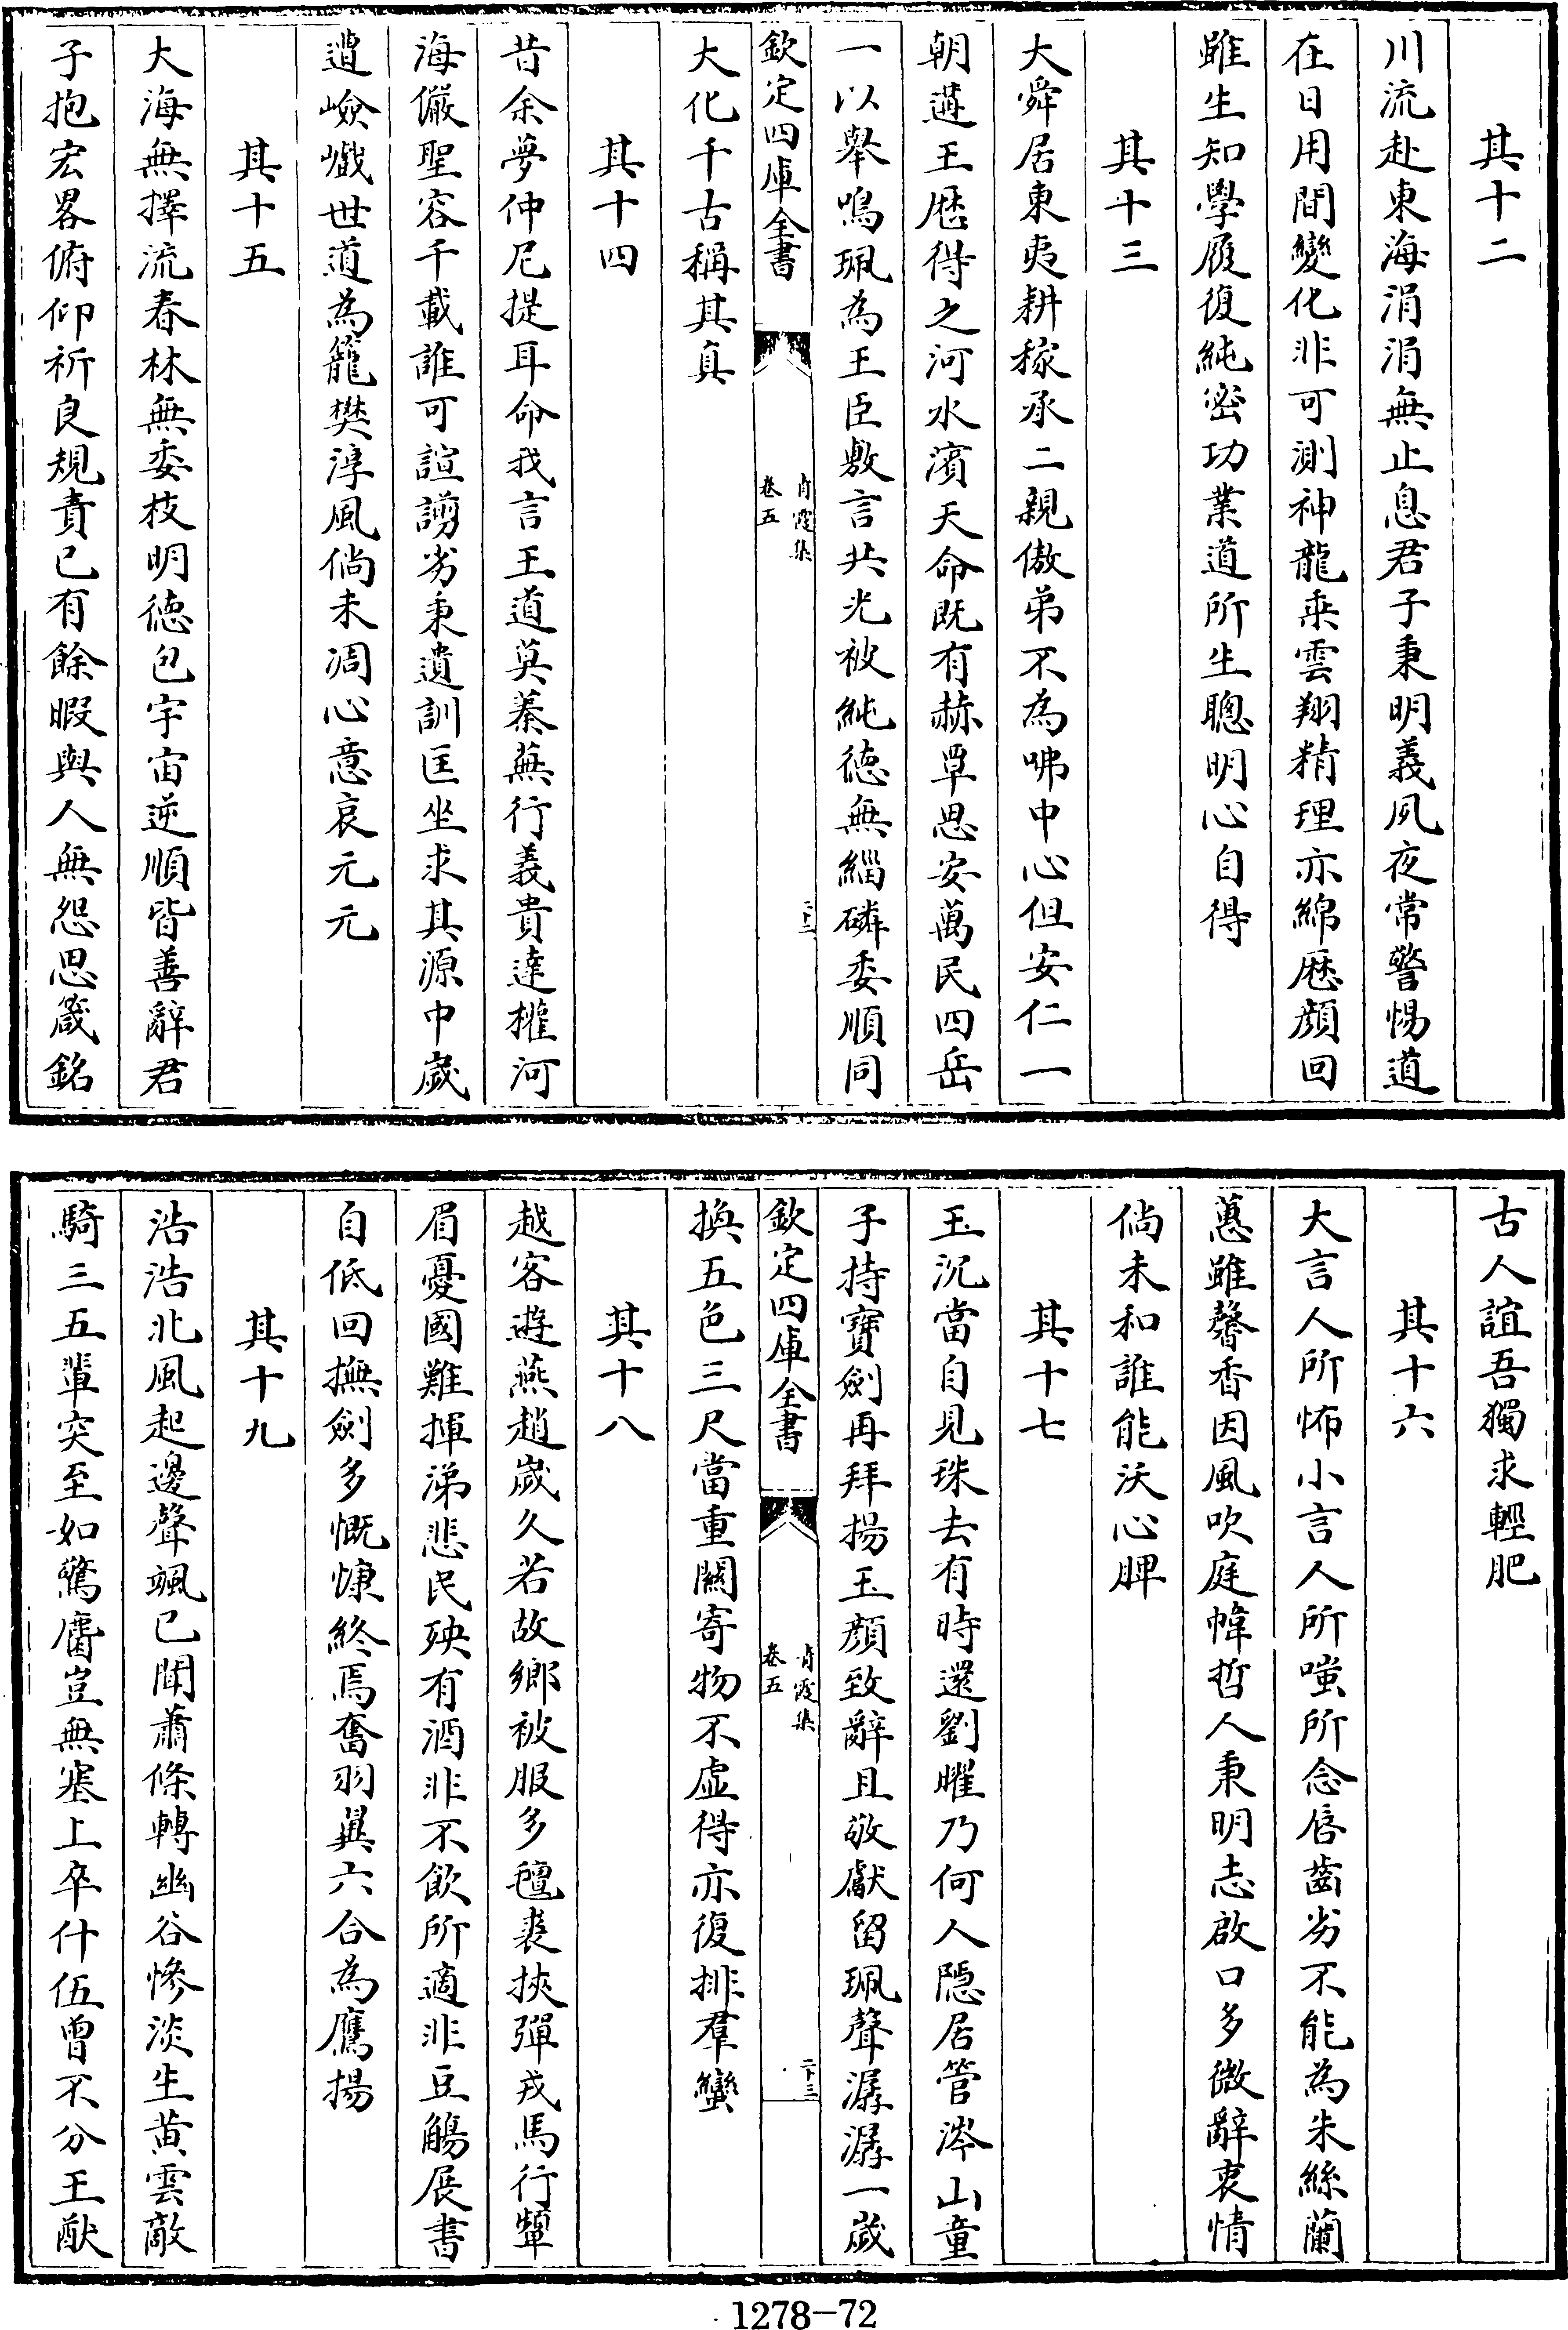 其十二
川流赴東海涓涓無止息君子秉明義夙夜常警惕道
在日用間變化非可測神龍乘雲翔精理亦綿歴顔回
雖生知學履復純密功業道所生聰明心自得
其十三
大舜居東夷耕稼承二親傲弟不為咈中心但安仁一
朝遘王歴得之河水濱天命既有赫覃思安萬民四岳
一以舉鳴珮為王臣敷言共光被純德無緇磷委順同
欽定四庫全書
青霞集
卷五
二十二
大化千古稱其真
其十四
昔余夢仲尼提耳命我言王道莫蓁蕪行義貴達權河
海儼聖容千載誰可諠謭劣秉遺訓匡坐求其源中嵗
遭嶮巇世道為籠樊淳風倘未凋心意哀元元
其十五
大海無擇流春林無委枝明德包宇宙逆順皆善辭君
子抱宏畧俯仰祈良規責已有餘暇與人無怨思箴銘
古人誼吾獨求輕肥
其十六
大言人所怖小言人所嗤所念唇齒劣不能為朱絲蘭
蕙雖馨香因風吹庭幃哲人秉明志啟口多微辭衷情
倘未和誰能沃心脾
其十七
玉沉當自見珠去有時還劉曜乃何人隠居管涔山童
子持寶劍再拜揚玉顔致辭且敬獻留珮聲潺潺一嵗
欽定四庫全書
青霞集
卷五
二十三
換五色三尺當重關寄物不虚得亦復排羣蠻
其十八
越客遊燕趙嵗久若故鄉被服多氊裘挾彈戎馬行顰
眉憂國難揮涕悲民殃有酒非不飲所適非豆觴展書
自低回撫劍多慨慷終焉奮羽異六合為鷹揚
其十九
浩浩北風起邊聲颯已聞蕭條轉幽谷慘淡生黄雲敵
騎三五輩突至如驚麕豈無塞上卒什伍曾不分王猷
1278-72